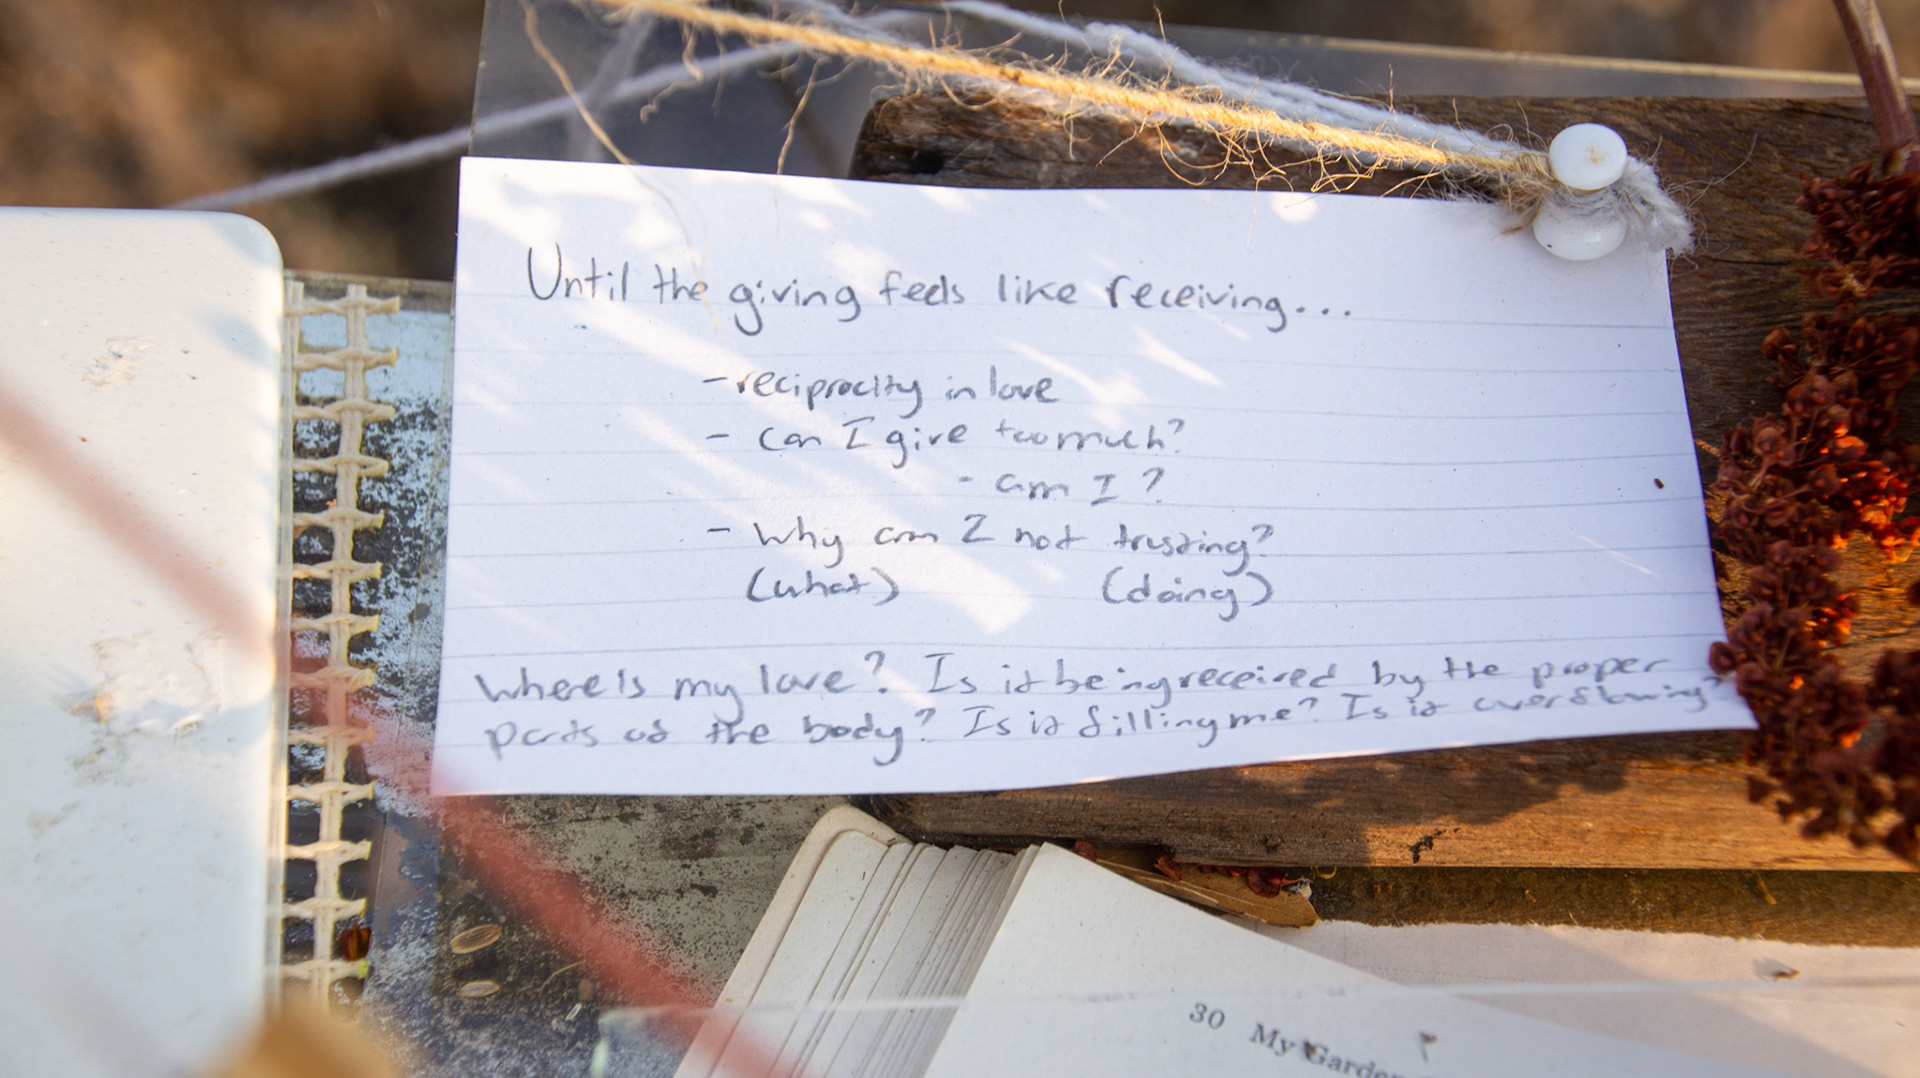 Until the giving feels like receiving...
- reciprocity in love
- can I give too much?
- am I?
- Why am I not trusting?
(what) (doing)
Where is my love? Is it being received by the proper
parts of the body? Is it filling me? Is it overflowing?
30 My Garden